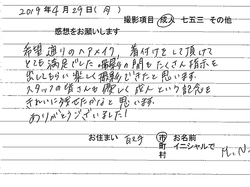 2019年4月29日(月)
撮影項目 成人 七五三 その他
感想をお願いします
希望通りのヘアメイク、着付けをして頂けて
とても満足でした。撮影の間もたくさん指示を
出してもらい楽しく撮影できたと思います。
スタッフの皆さんも優しく成人という記念を
きれいに残せたかなと思います。
ありがとうございました!
お住まい 市 町 村 お名前 イニシャルで M.N.